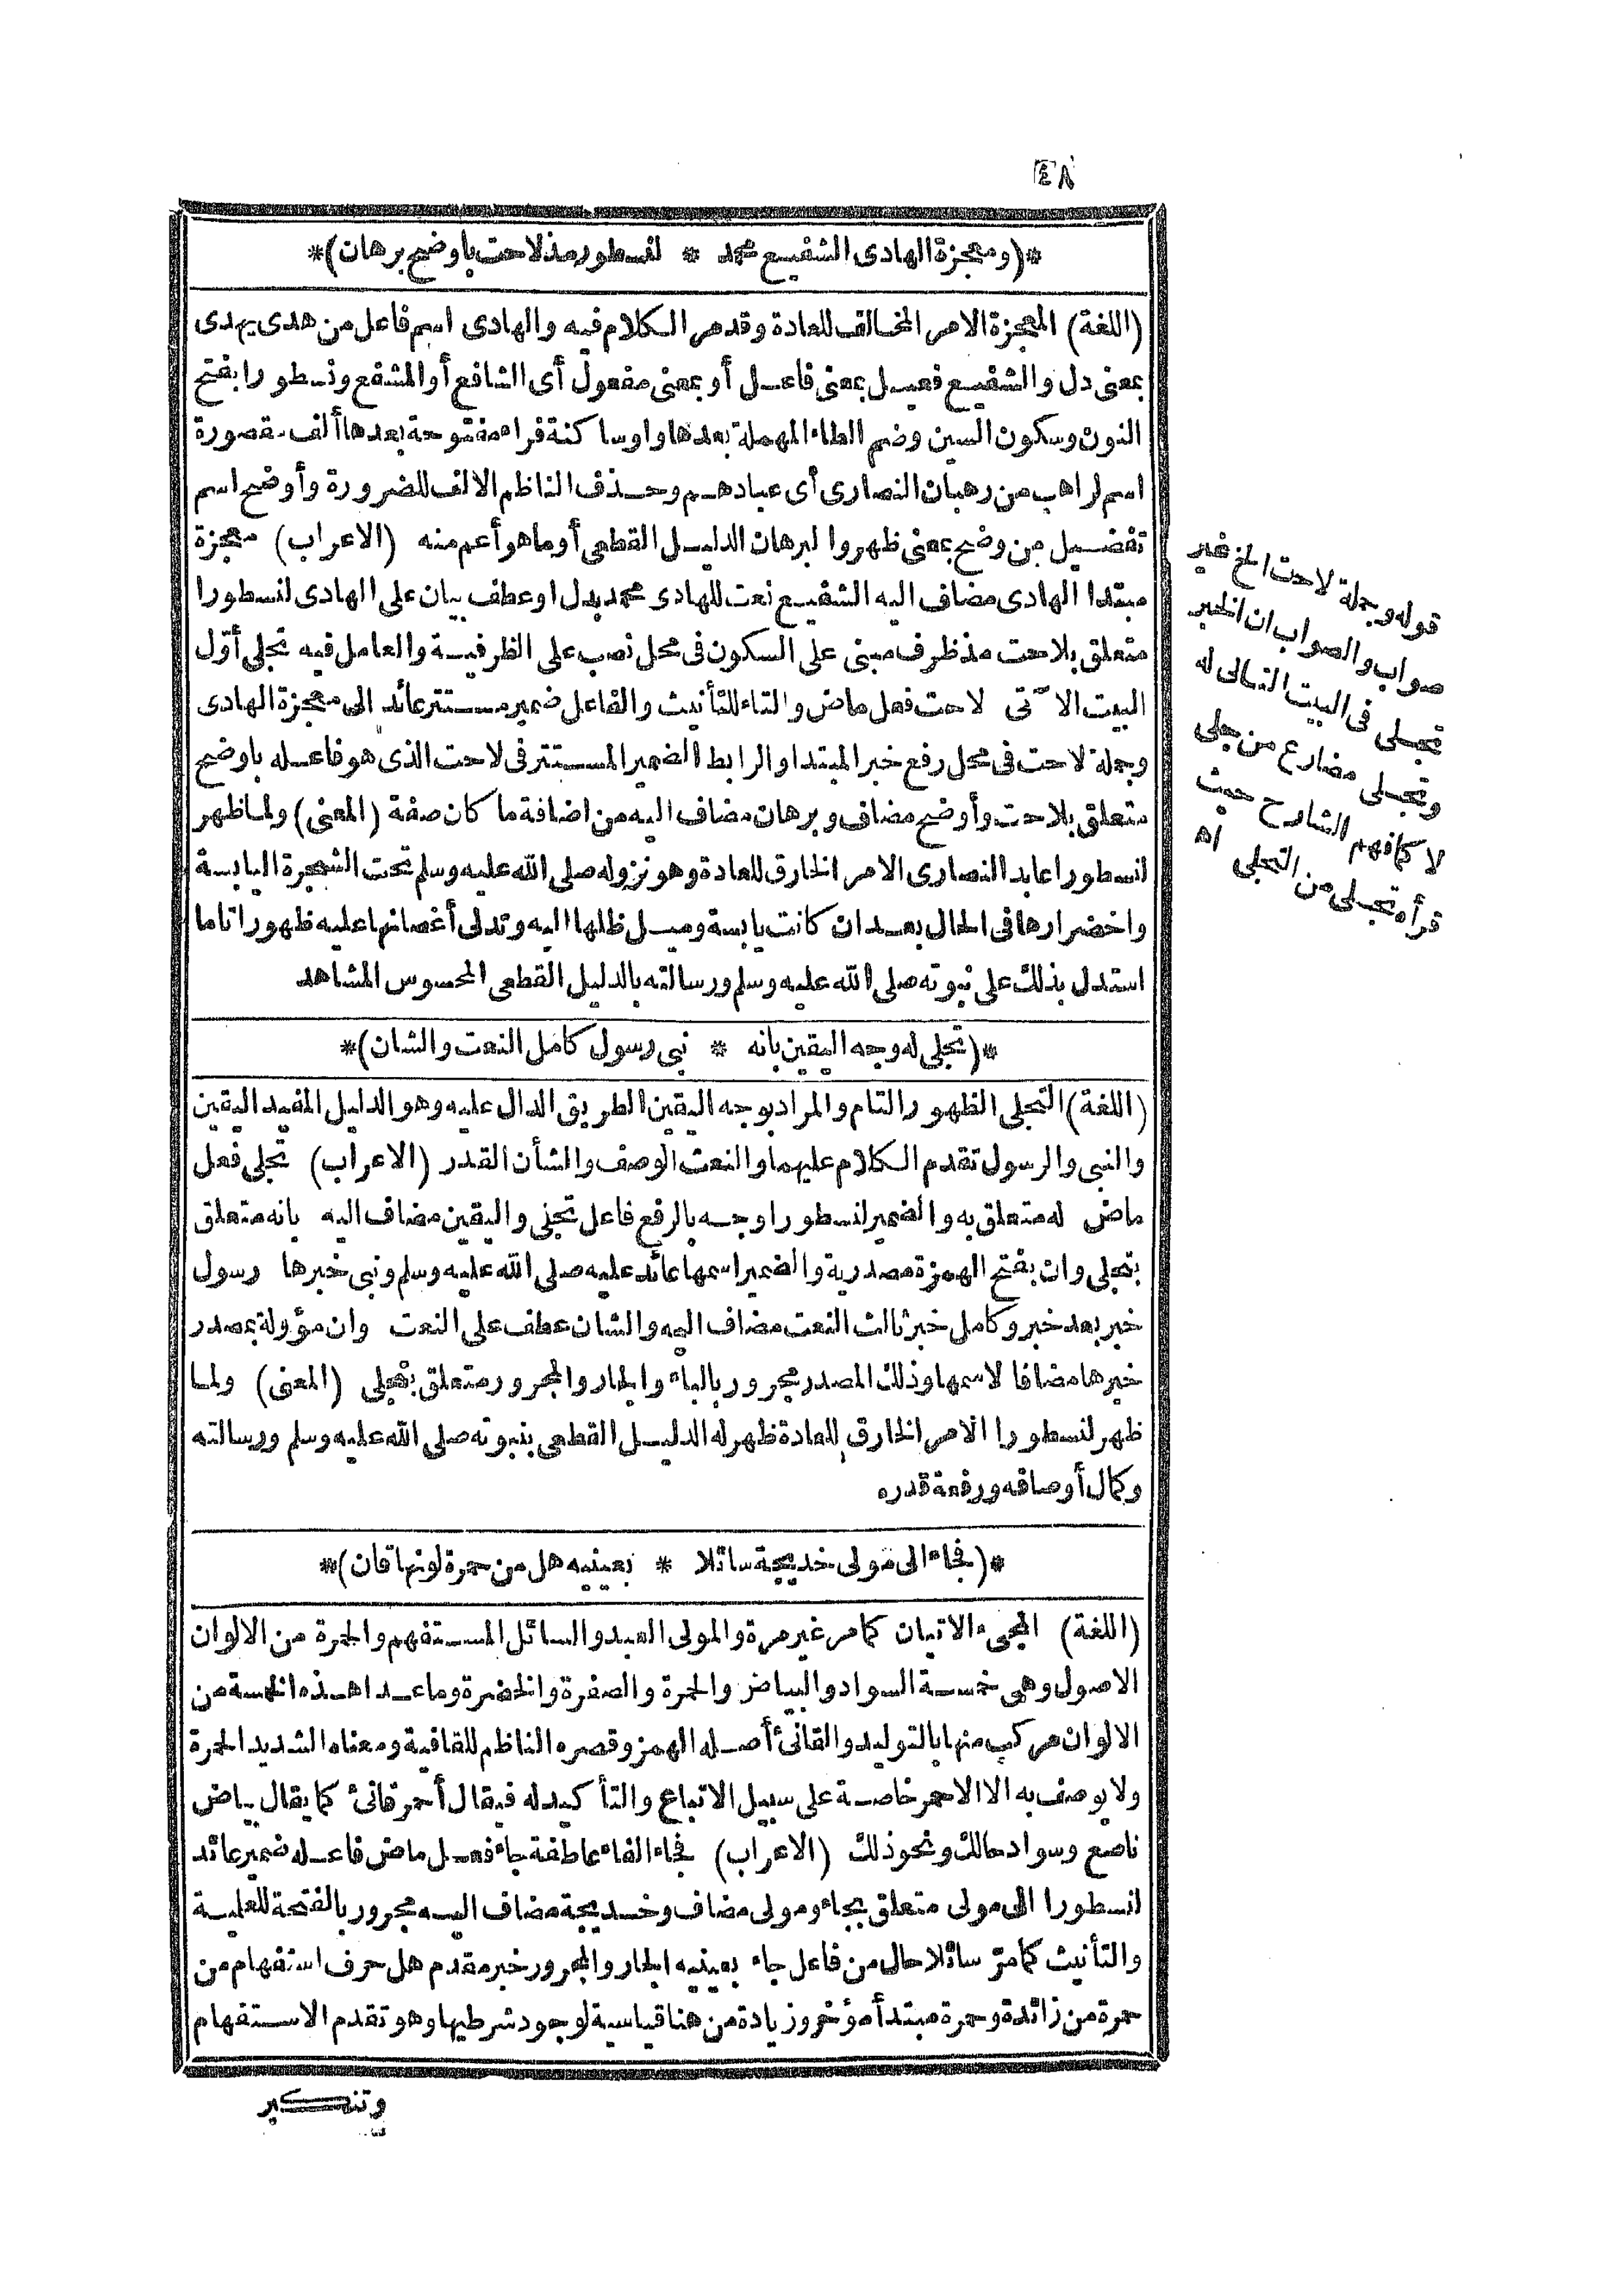 ٤٨
*(ومعجزة الهادى الشفيع محمد * لنسطور مذ لاحت باوضح برهان)*
(اللغة) المعجزة الامر المخالف للعادة وقد مر الكلام فيه والهادى اسم فاعل من هدى يهدى
بمعنى دل والشفيع فعيل بمعنى فاعل أو بمعنى مفعول أى الشافع أو المشفع ونسطورا بفتح
النون وسكون السين وضم الطاء المهملة بعدها واو ساكنة فراء مفتوحة بعدها ألف مقصورة
اسم لراهب من رهبان النصارى أى عبادهم وحذف الناظم الالف للضرورة وأوضح اسم
تفضيل من وضح بمعنى ظهر والبرهان الدليل القطعى أو ما هو أعم منه (الاعراب) معجزة
مبتدا الهادى مضاف اليه الشفيع نعت للهادى محمد بدل او عطف بيان على الهادى لنسطورا
متعلق بلاحت مذ ظرف مبنى على السكون فى محل نصب على الظرفية والعامل فيه تجلى أوّل
البيت الآتى لاحت فعل ماض والتاء للتأنيث والفاعل ضمير مستتر عائد الى معجزة الهادى
وجملة لاحت فى محل رفع خبر المبتدا والرابط الضمير المستتر فى لاحت الذى هو فاعله باوضح
متعلق بلاحت وأوضح مضاف وبرهان مضاف اليه من اضافة ما كان صفة (المعنى) ولما ظهر
لنسطورا عابد النصارى الامر الخارق للعادة وهو نزوله صلى الله عليه وسلم تحت الشجرة اليابسة
واخضرارها فى الحال بعد ان كانت يابسة وميل ظلها اليه وتدلى أغصانها عليه ظهورا تاما
استدل بذلك على نبوته صلى الله عليه وسلم ورسالته بالدليل القطعى المحسوس المشاهد
*(تجلى له وجه اليقين بانه * نبى رسول كامل النعت والشان)*
(اللغة) التجلى الظهور التام والمراد بوجه اليقين الطريق الدال عليه وهو الدليل المفيد اليقين
والنبى والرسول تقدم الكلام عليهما والنعت الوصف والشأن القدر (الاعراب) تجلى فعل
ماض له متعلق به والضمير لنسطورا وجه بالرفع فاعل تجلى واليقين مضاف اليه بانه متعلق
بتجلى وان بفتح الهمزة مصدرية والضمير اسمها عائد عليه صلى الله عليه وسلم ونبى خبرها رسول
خبر بعد خبر وكامل خبر ثالث النعت مضاف اليه والشان عطف على النعت وان مؤولة بمصدر
خبرها مضافا لاسمها وذلك المصدر مجرور بالباء والجار والمجرور متعلق بتجلى (المعنى) ولما
ظهر لنسطورا الامر الخارق للعادة ظهر له الدليل القطعى بنبوته صلى الله عليه وسلم ورسالته
وكمال أوصافه ورفعة قدره
*(فجاء الى مولى خديجة سائلا * بعينيه هل من حمرة لونها قان)*
(اللغة) المجىء الاتيان كما مر غير مرة والمولى العبد والسائل المستفهم والحمرة من الالوان
الاصول وهى خمسة السواد والبياض والحمرة والصفرة والخضرة وما عدا هذه الخمسة من
الالوان مركب منها بالتوليد والقانئ أصله الهمز وقصره الناظم للقافية ومعناه الشديد الحمرة
ولا يوصف به الا الاحمر خاصة على سبيل الاتباع والتأكيد له فيقال أحمر قانئ كما يقال بياض
ناصع وسواد حالك ونحو ذلك (الاعراب) فجاء الفاء عاطفة جاء فعل ماض فاعله ضمير عائد
لنسطورا الى مولى متعلق بجاء ومولى مضاف وخديجة مضاف اليه مجرور بالفتحة للعلمية
والتأنيث كما مرّ سائلا حال من فاعل جاء بعينيه الجار والمجرور خبر مقدم هل حرف استفهام من
حمرة من زائدة وحمرة مبتدأ مؤخر وزيادة من هنا قياسية لوجود شرطيها وهو تقدم الاستفهام
وتنكير
قوله وجملة لاحت الخ غير
صواب والصواب ان الخبر
تجلى فى البيت التالى له
وتجلى مضارع من جلى
لا كما فهم الشارح حيث
قرأه تجلى من التجلى اه